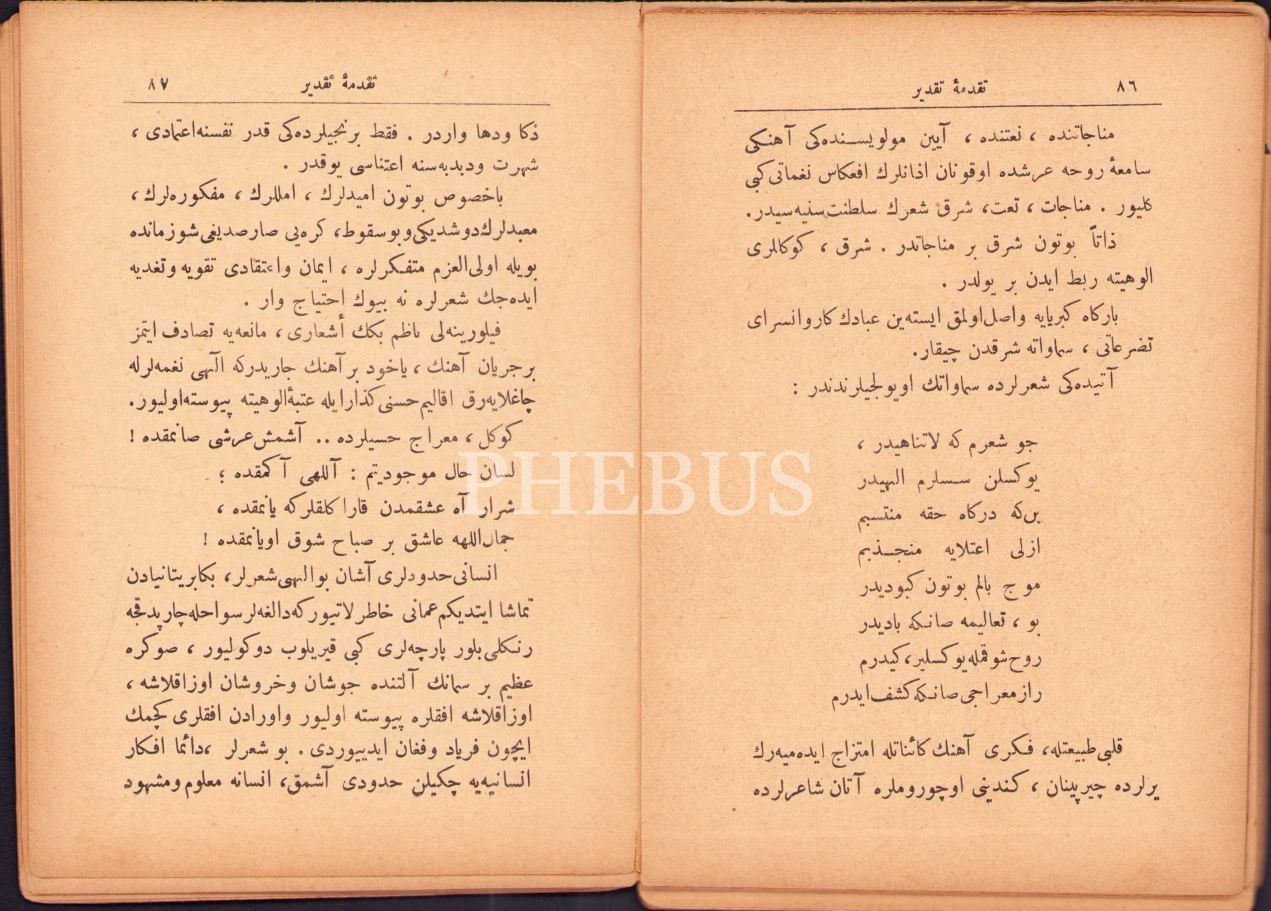 ٨٦ تقدمهٔ تقدير
مناجاتنده ، نعتنده ، آيين مولويسنده‌كی آهنكی
سامعهٔ روحه عرشده اوقونان اذانلرك افعكاس نغماتی كبی
كليور . مناجات ، نعت، شرق شعرك سلطنت سنيه سيدر.
ذاتاً بوتون شرق بر مناجاتدر . شرق ، كوكللری
الوهيته ربط ايدن بر يولدر .
باركاه كبريايه واصل اولمق ايسته‌ين عبادك كاروانسرای
تضرعاتی ، سماواته شرقدن چيقار.
آتيده‌كی شعرلرده سماواتك او يولجيلرندندر :
جو شعرم كه لاتناهيدر ،
يوكسلن سسلرم الهيدر
بن‌كه دركاه حقه منتسبم
ازلی اعتلايه منجذبم
موج بالم بوتون كبوديدر
بو ، تعاليمه صانكه باديدر
روح شوقمله يوكسلير، كيدرم
راز معراجی صانكه كشف ايدرم
قلبی طبيعتله، فكری آهنك كائناتله امتزاج ايده‌ميه‌رك
يرلرده چيرپينان ، كندينی اوچوروملره آتان شاعرلرده
تقدمهٔ تقدير ٨٧
ذكا ودها واردر . فقط برنجيلرده‌كی قدر نفسنه اعتمادی ،
شهرت ودبدبه‌سنه اعتناسی يوقدر .
باخصوص بوتون اميدلرك ، امللرك ، مفكوره‌لرك ،
معبدلرك دوشديكی وبو سقوط، كره‌يی صارصديغی شو زمانده
بويله اولی العزم متفكرلره ، ايمان واعتقادی تقويه وتغديه
ايده‌جك شعرلره نه بيوك احتياج وار .
فيلورينه‌لی ناظم بكك أشعاری ، مانعه‌يه تصادف ايتمز
بر جريان آهنك ، ياخود بر آهنك جاريدركه الٓهی نغمه‌لرله
چاغلايه‌رق اقاليم حسنی كذار ايله عتبهٔ الوهيته پيوسته اوليور.
كوكل ، معراج حسيلرده .. آشمش عرشی صانمقده !
لسان حال موجوديتم : آللهی آكمقده ؛
شرار آه عشقمدن قاراكلقلركه يانمقده ،
جمال اللهه عاشق بر صباح شوق اويانمقده !
انسانی حدودلری آشان بو الهی شعرلر، بكا بريتانيادن
تماشا ايتديكم عمانی خاطرلاتيوركه دالغه‌لر سواحله چارپدقجه
رنكلی بلور پارچه‌لری كبی قيريلوب دوكوليور ، صوكره
عظيم بر سمانك آلتنده جوشان وخروشان اوزاقلاشه ،
اوزاقلاشه افقلره پيوسته اوليور واورادن افقلری كچمك
ايچون فرياد وفغان ايدييوردی . بو شعرلر ،دائما افكار
انسانيه‌يه چكيلن حدودی آشمق، انسانه معلوم ومشهود
PHEBUS